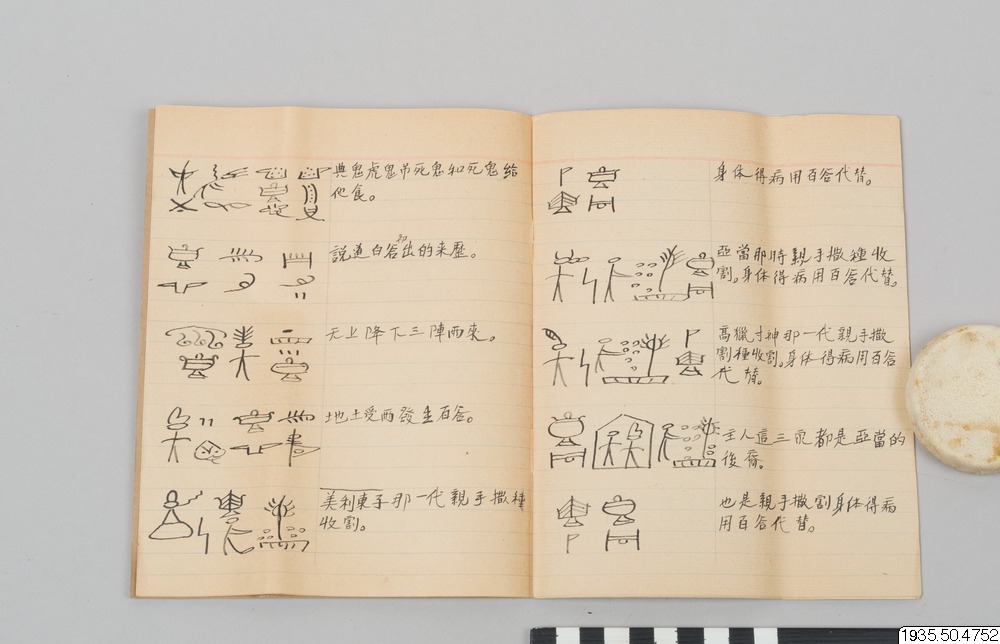 典鬼虎鬼吊死鬼和死鬼給
他食。
説道百答和出的来歷。
天上降下三陣雨來。
地土受雨發出百答。
美利東子那一代親手撒種
收割。
身体得病用百答代替。
亞當那時親手撒種收
割。身体得病用百答代替。
高獵寸神那一代親手撒
割種收割。身体得病用百答
代替。
主人這三家都是亞當的
後裔。
也是親手撒割身体得病
用百答代替。
1935.50.4752